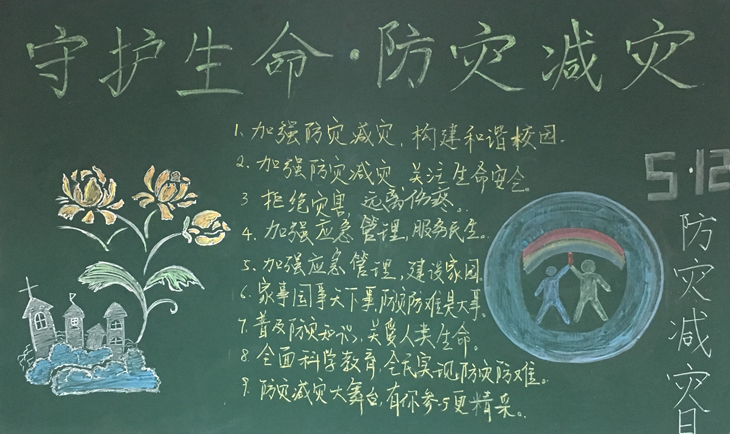 守护生命·防灾减灾
1、加强防灾减灾，构建和谐校园.
2. 加强防灾减灾 关注生命安全。
3 拒绝灾害 远离伤疼。
4. 加强应急管理,服务民生。
5. 加强应急管理,建设家园
6. 家事国事天下事,防灾防难是大事.
7. 普及防灾知识、关爱人类生命。
8 全面科学教育,全民实现,防灾防难.
9. 防灾减灾大舞台,有你参与更精采。
5·12
防灾减灾日